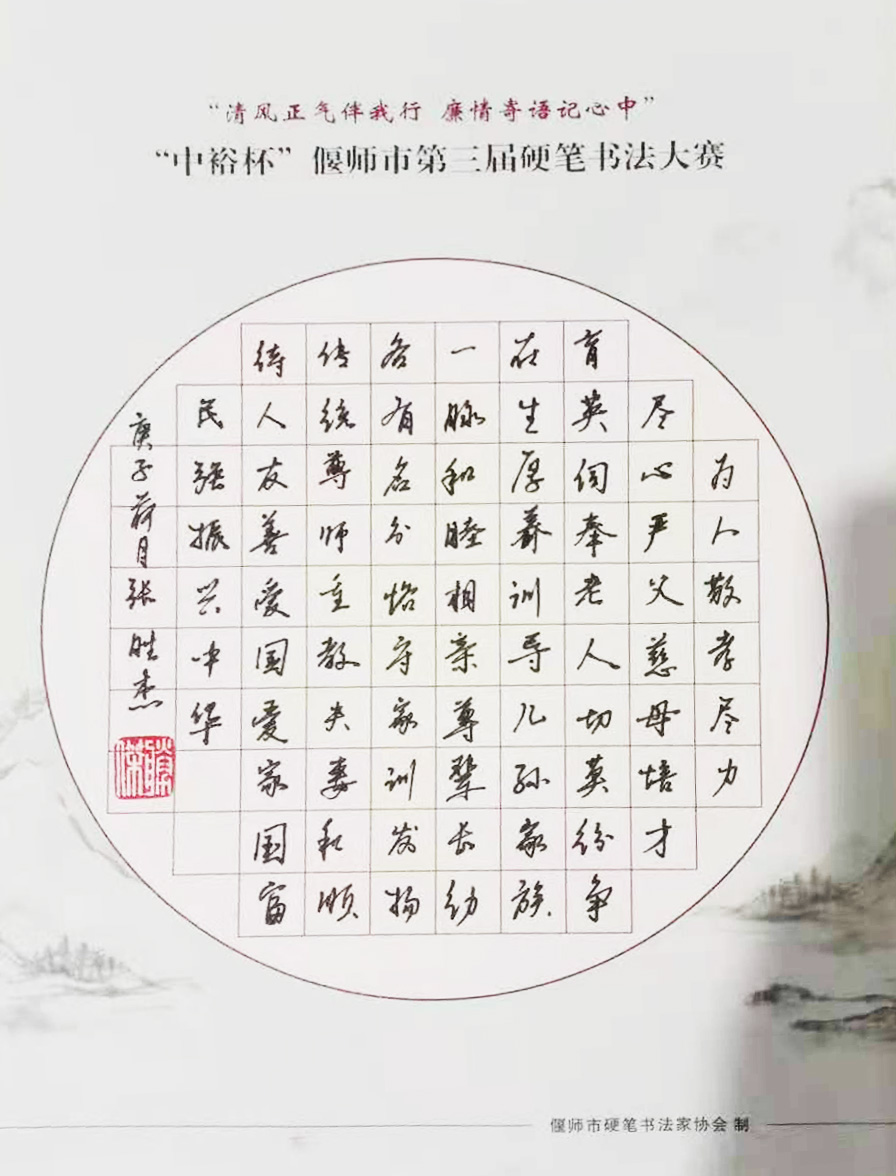 “清风正气伴我行 廉情寄语记心中”
“中裕杯”偃师市第三届硬笔书法大赛
为人敬孝尽力
尽心严父慈母培才
育英伺奉老人切莫纷争
在生厚养训导儿孙家族
一脉和睦相亲尊辈长幼
各有名分恪守家训发扬
传统尊师重教夫妻和顺
待人友善爱国爱家国富
民强振兴中华
庚子荷月张胜杰
偃师市硬笔书法家协会 制